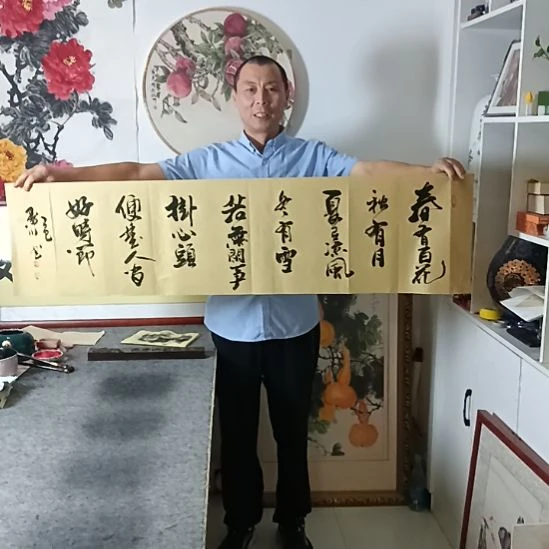 春有百花
秋有月
夏有凉風
冬有雪
若無閑事
掛心頭
便是人间
好時節